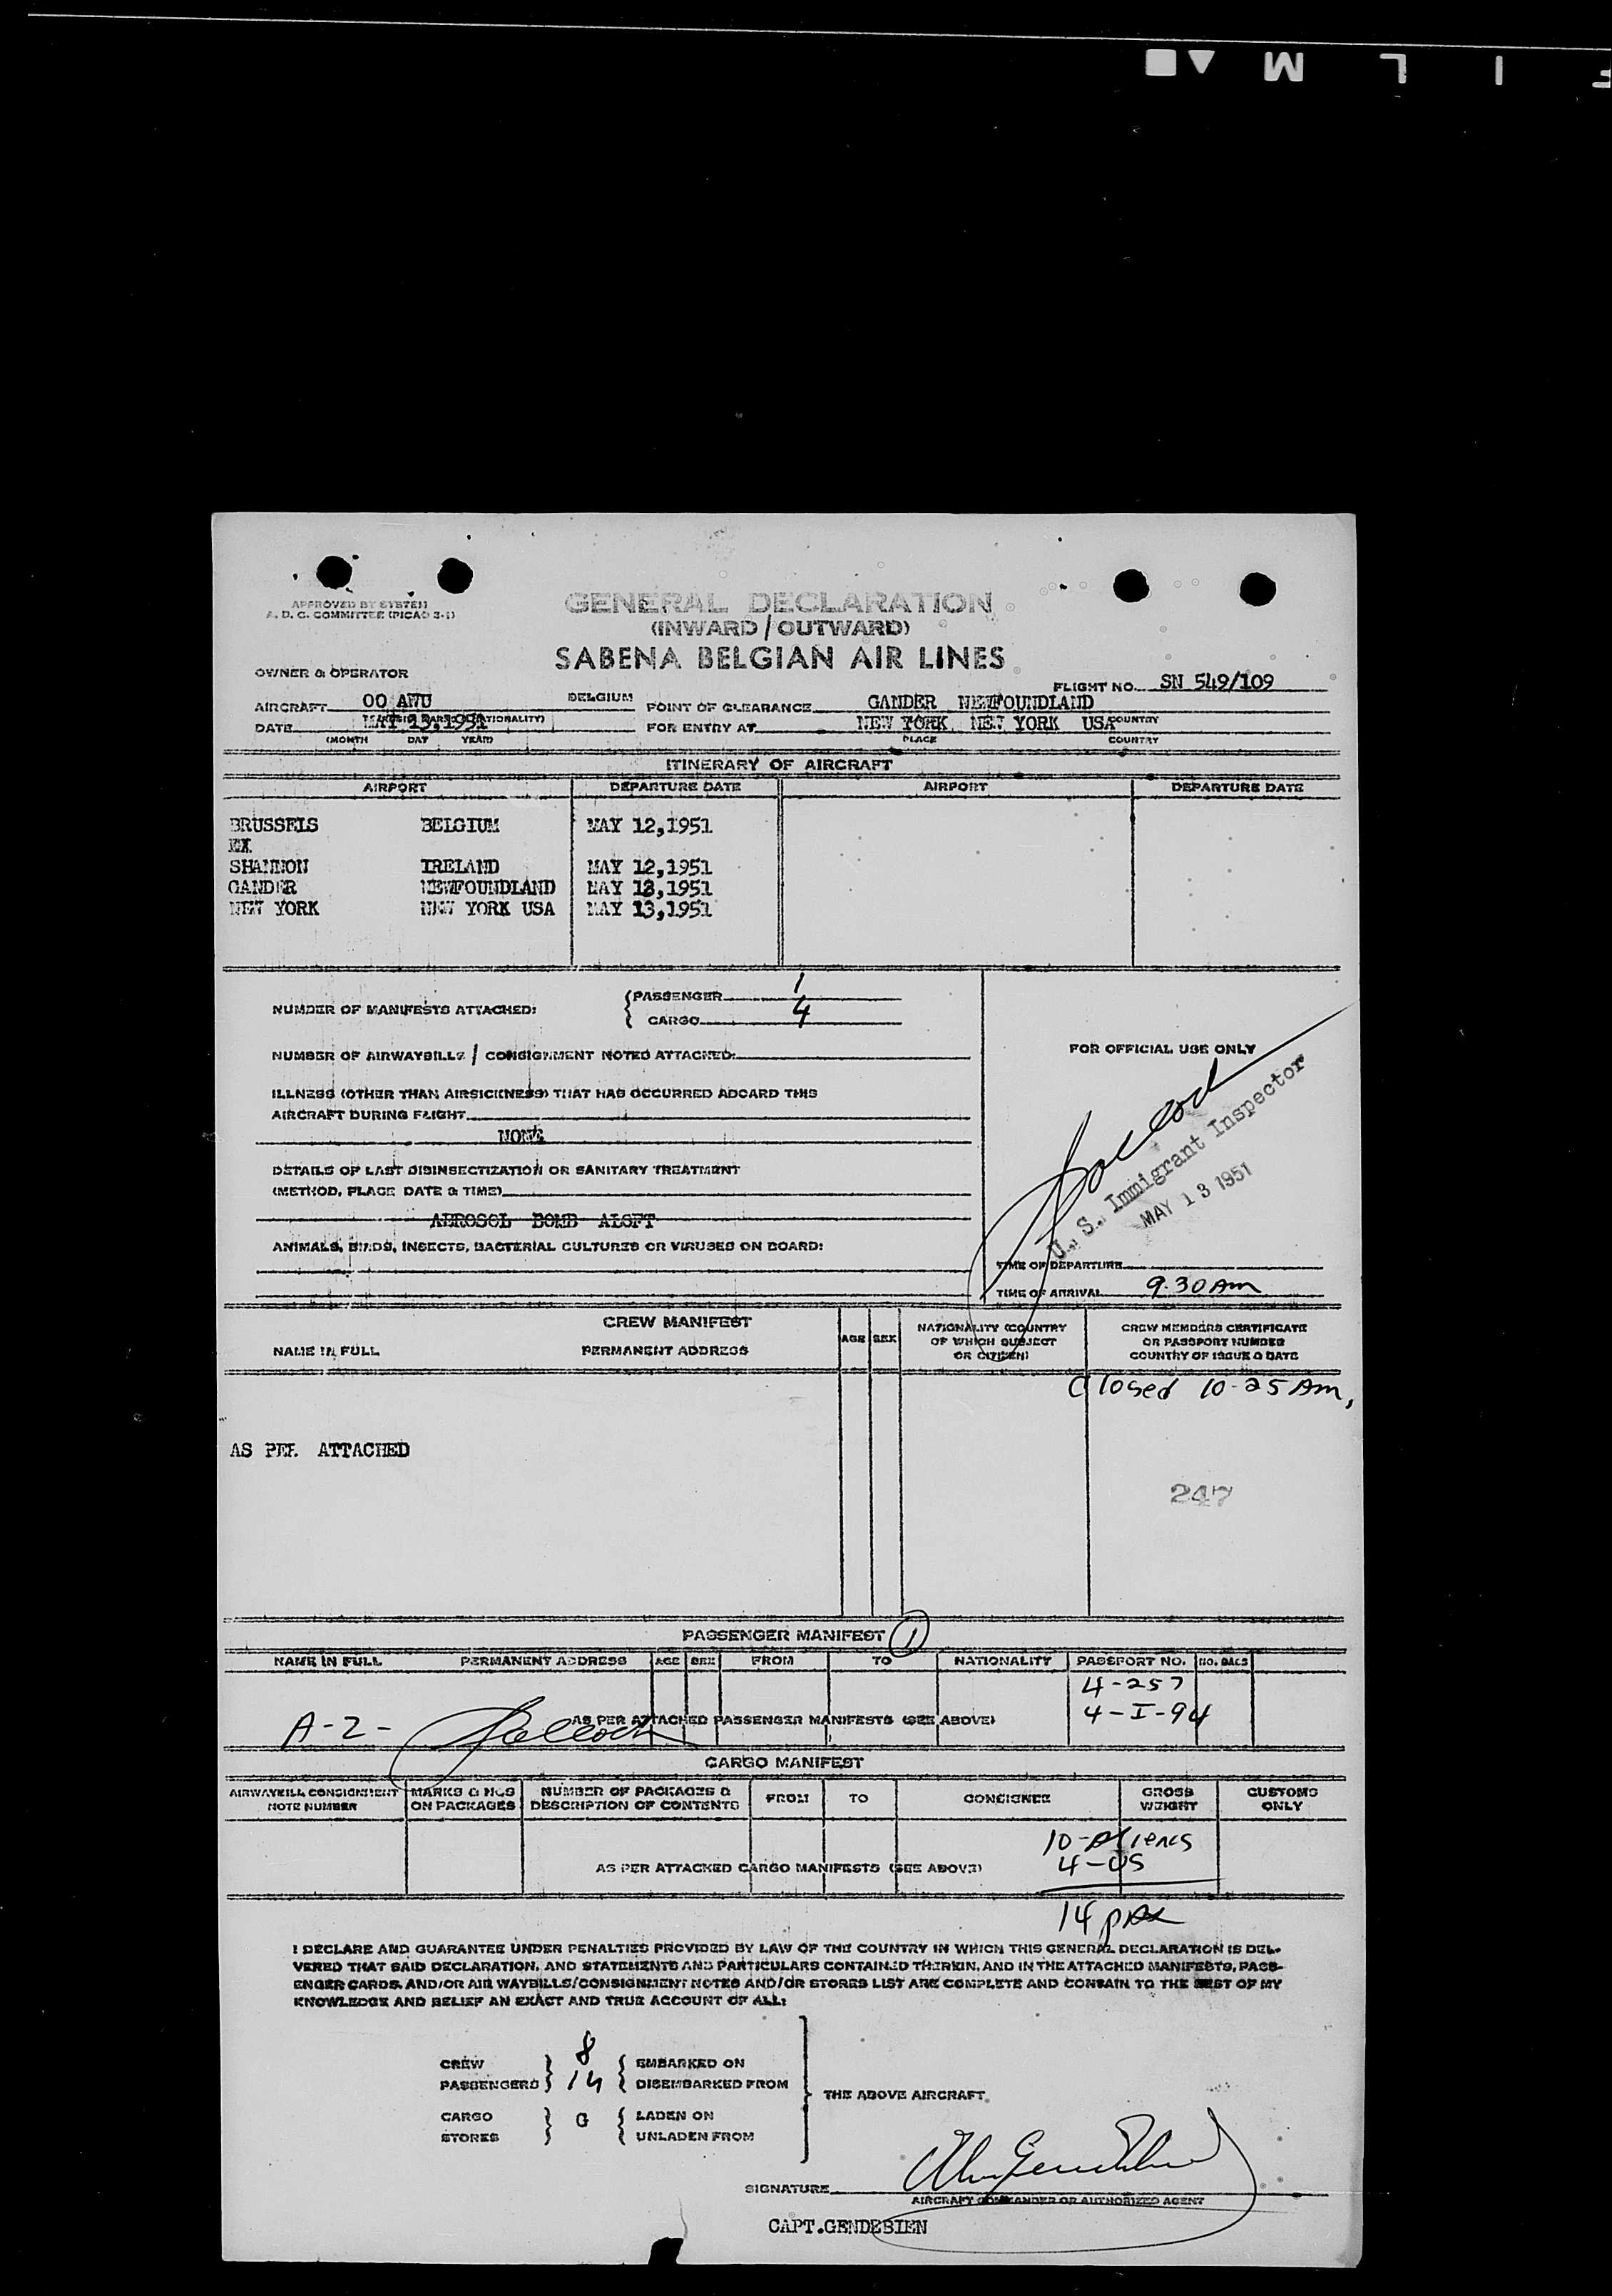 F I L M
APPROVED BY SYSTEM
A. D. C. COMMITTEE (PICAO 3-1)
GENERAL DECLARATION
(INWARD / OUTWARD)
SABENA BELGIAN AIR LINES
OWNER & OPERATOR
FLIGHT NO. SN 549/109
AIRCRAFT OO AWU BELGIUM POINT OF CLEARANCE GANDER NEWFOUNDLAND
DATE MAY 13,1951 FOR ENTRY AT NEW YORK NEW YORK USA COUNTRY
(MONTH DAY YEAR) PLACE COUNTRY
ITINERARY OF AIRCRAFT
AIRPORT DEPARTURE DATE AIRPORT DEPARTURE DATE
BRUSSELS BELGIUM MAY 12,1951
EX
SHANNON IRELAND MAY 12,1951
GANDER NEWFOUNDLAND MAY 13,1951
NEW YORK NEW YORK USA MAY 13,1951
NUMBER OF MANIFESTS ATTACHED: PASSENGER 1
CARGO 4
NUMBER OF AIRWAYBILLS / CONSIGNMENT NOTES ATTACHED:
FOR OFFICIAL USE ONLY
ILLNESS (OTHER THAN AIRSICKNESS) THAT HAS OCCURRED ABOARD THIS
AIRCRAFT DURING FLIGHT
NONE
DETAILS OF LAST DISINSECTIZATION OR SANITARY TREATMENT
(METHOD, PLACE DATE & TIME)
AEROSOL BOMB ALOFT
U. S. Immigrant Inspector
MAY 13 1951
ANIMALS, BIRDS, INSECTS, BACTERIAL CULTURES OR VIRUSES ON BOARD:
TIME OF DEPARTURE
TIME OF ARRIVAL 9.30 AM
CREW MANIFEST
NAME IN FULL PERMANENT ADDRESS AGE SEX NATIONALITY (COUNTRY OF WHICH SUBJECT OR CITIZEN) CREW MEMBERS CERTIFICATE OR PASSPORT NUMBER COUNTRY OF ISSUE & DATE
Closed 10-25 AM,
AS PER ATTACHED
247
PASSENGER MANIFEST 1
NAME IN FULL PERMANENT ADDRESS AGE SEX FROM TO NATIONALITY PASSPORT NO. NO. BAGS
4-257
A-2- AS PER ATTACHED PASSENGER MANIFESTS (SEE ABOVE) 4-I-94
CARGO MANIFEST
AIRWAYBILL CONSIGNMENT NOTE NUMBER MARKS & NOS ON PACKAGES NUMBER OF PACKAGES & DESCRIPTION OF CONTENTS FROM TO CONSIGNEE GROSS WEIGHT CUSTOMS ONLY
10-Aliens
AS PER ATTACHED CARGO MANIFESTS (SEE ABOVE) 4-US
14 pax
I DECLARE AND GUARANTEE UNDER PENALTIES PROVIDED BY LAW OF THE COUNTRY IN WHICH THIS GENERAL DECLARATION IS DEL-
VERED THAT SAID DECLARATION, AND STATEMENTS AND PARTICULARS CONTAINED THEREIN, AND IN THE ATTACHED MANIFESTS, PASS-
ENGER CARDS, AND/OR AIR WAYBILLS/CONSIGNMENT NOTES AND/OR STORES LIST ARE COMPLETE AND CONTAIN TO THE BEST OF MY
KNOWLEDGE AND BELIEF AN EXACT AND TRUE ACCOUNT OF ALL:
CREW 8 EMBARKED ON
PASSENGERS 14 DISEMBARKED FROM
THE ABOVE AIRCRAFT.
CARGO G LADEN ON
STORES UNLADEN FROM
SIGNATURE
AIRCRAFT COMMANDER OR AUTHORIZED AGENT
CAPT.GENDEBIEN